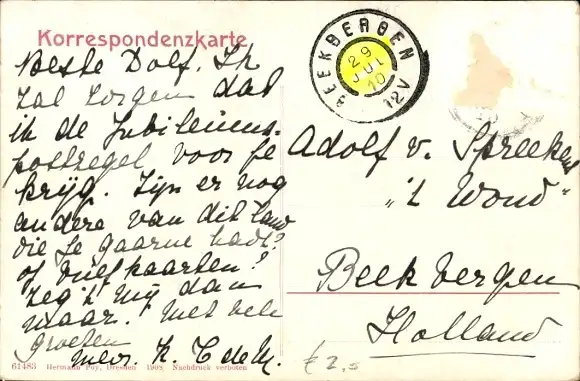 Korrespondenzkarte
Beste Dolf. Ik
zal zorgen dat
ik de Jubileums-
postzegel voor je
krijg. Zijn er nog
andere van dit land
die je gaarne hadt?
of briefkaarten?
Zeg 't mij dan
maar. Met vele
groeten
Mevr. K. C de M.
BEEKBERGEN
29
JUL
10
12V
Adolf v. Spreekens
"'t Wond"
Beekbergen
Holland
€ 2,50
61483 Hermann Poy, Dresden 1908 Nachdruck verboten